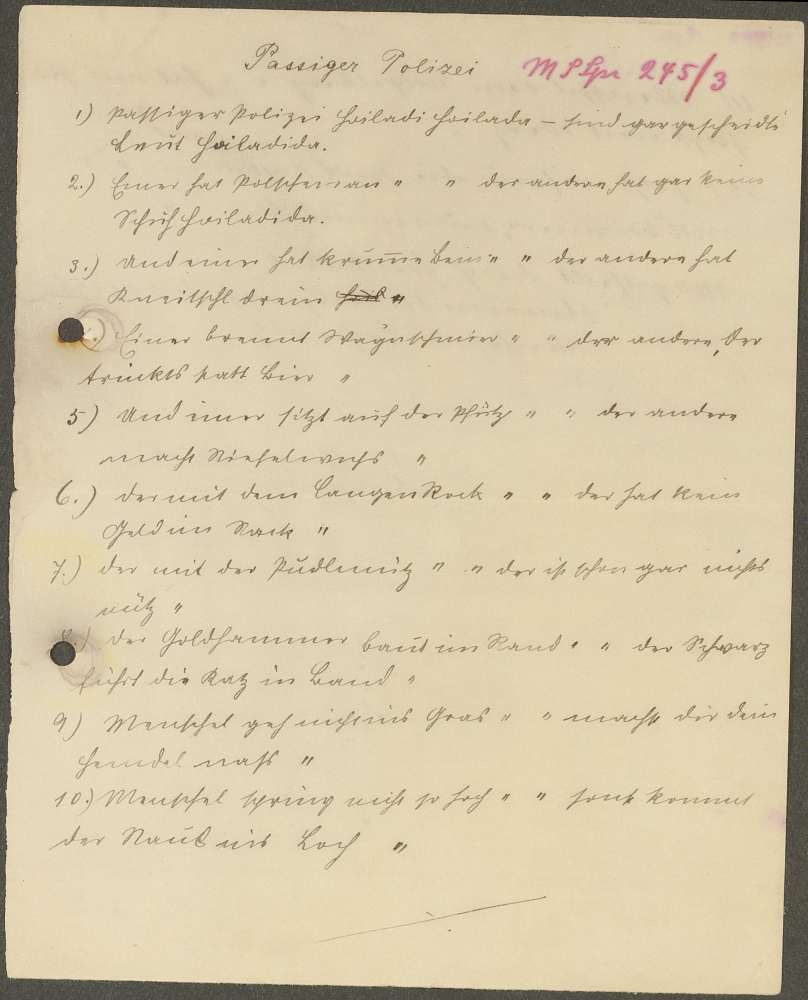 Passiger Polizei
MSSpr 245/3
1) Passiger Polizei hoiladi hoilada – sind gar gescheidte
Leut hoiladida.
2.) Einer hat Patschen an " " der andere hat gar keine
Schuh hoiladida.
3.) Und einer hat krumme Bein " " der andere hat
drein "
Einer brennt Wagnschmier " " der andere, der
trinkts statt Bier "
5) Und einer sitzt auf der " " der andere
macht "
6.) der mit dem langen Rock " " der hat kein
Geld im Sack "
7.) der mit der Pudlmütz " " der ist schon gar nichts
nütz "
8.) der Goldhammer baut im Sand " " der Schwarz
führt die Katz im Band "
9) Menschel geh nicht ins Gras " " machst dir dein
Hemdel nass "
10.) Menschel spring nicht so hoch " " sonst kommt
der ins Loch "